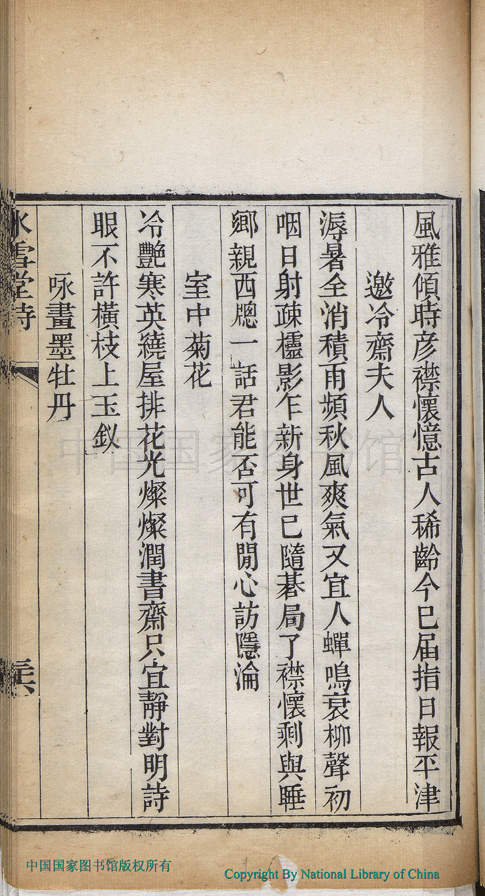 風雅傾時彥襟懷憶古人稀齡今已屆指日報平津
邀冷齋夫人
溽暑全消積雨頻秋風爽氣又宜人蟬鳴衰柳聲初
咽日射疎櫺影乍新身世已隨碁局了襟懷剩與睡
鄉親西牕一話君能否可有閒心訪隱淪
室中菊花
冷艷寒英繞屋排花光燦燦潤書齋只宜靜對明詩
眼不許橫枝上玉釵
咏畫墨牡丹
冰雪堂詩
中国国家图书馆
中国国家图书馆版权所有
Copyright By National Library of China